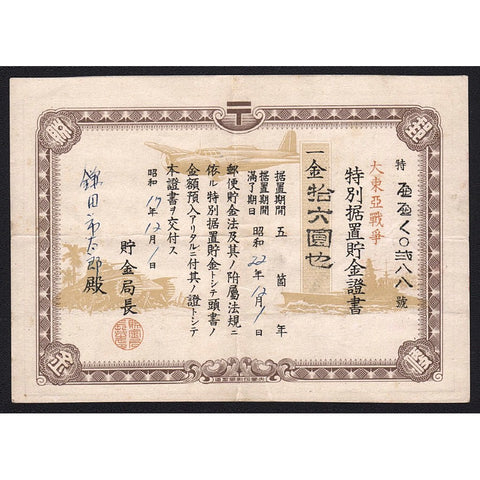 特 く〇弐八八 號
大東亞戰爭
特別据置貯金證書
一金拾六圓也
据置期間 五箇年
据置期間滿了期日 昭和 22年 12月 1日
郵便貯金法及其ノ附屬法規ニ
依ル特別据置貯金トシテ頭書ノ
金額預入アリタルニ付其ノ證トシテ
本證書ヲ交付ス
昭和 17年 12月 1日
貯金局長
鎌田 太郎 殿